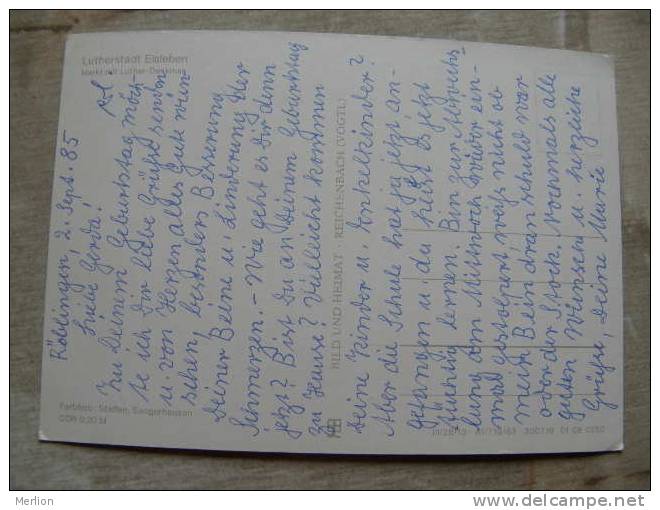 Lutherstadt Eisleben
Markt mit Luther-Denkmal
Röblingen, 2. Sept. 85
Liebe Gerda!
Zu Deinem Geburtstag möch-
te ich Dir liebe Grüße senden
u. von Herzen alles Gute wün-
schen, besonders Besserung
Deiner Beine u. Linderung der
Schmerzen. – Wie geht es Dir denn
jetzt? Bist Du an Deinem Geburtstag
zu Hause? Vielleicht kommen
Deine Kinder u. Enkelkinder?
Aber die Schule hat ja jetzt an-
gefangen u. da heißt es jetzt
fleißig lernen. Bin zur
lung am Mittwoch wieder ein-
mal gestolpert, weiß nicht ob
mein Bein dran schuld war
oder der Stock. Nochmals alle
guten Wünsche u. herzliche
Grüße, Deine Marie
BILD UND HEIMAT REICHENBACH (VOGTL)
Farbfoto: Steffen, Sangerhausen
DDR 0,20 M
Merlion
www.delcampe.net